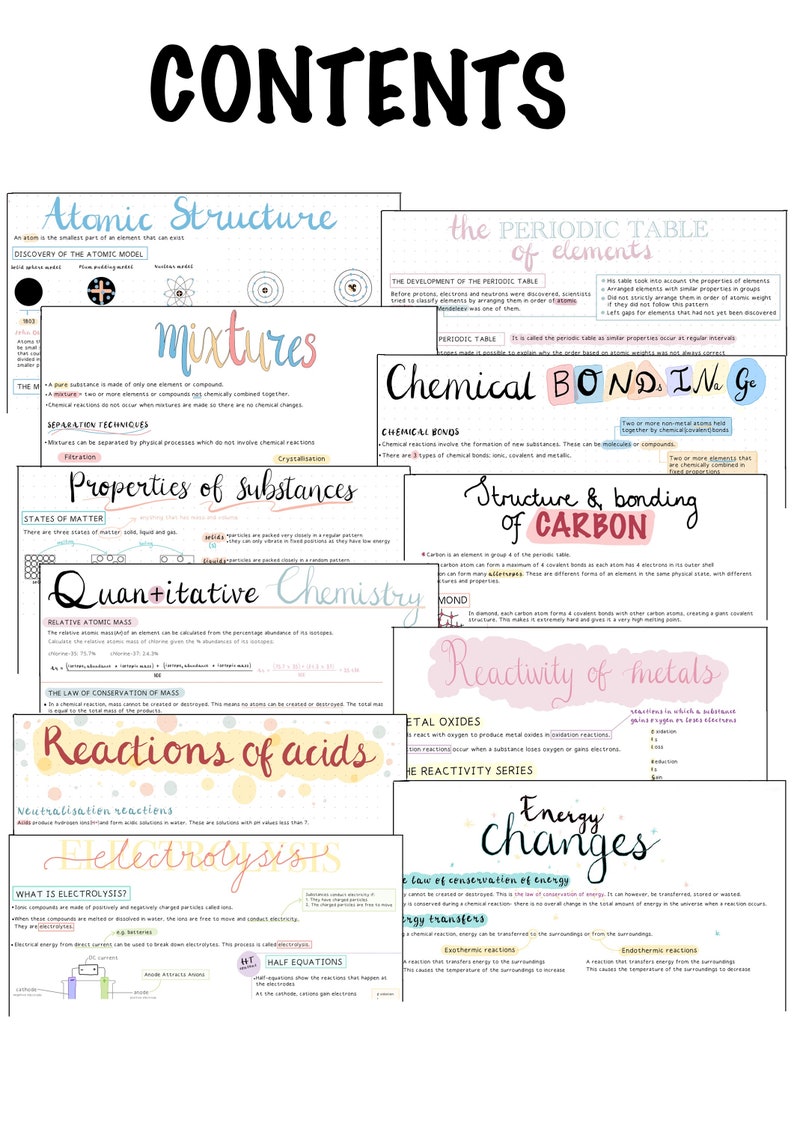 CONTENTS
Atomic Structure
An atom is the smallest part of an element that can exist
DISCOVERY OF THE ATOMIC MODEL
Solid sphere model
Plum pudding model
Nuclear model
1803
John Da
Atoms th
be small s
that cou
divided int
smaller p
THE M
the PERIODIC TABLE
of elements
THE DEVELOPMENT OF THE PERIODIC TABLE
Before protons, electrons and neutrons were discovered, scientists
tried to classify elements by arranging them in order of atomic
Mendeleev was one of them.
His table took into account the properties of elements
Arranged elements with similar properties in groups
Did not strictly arrange them in order of atomic weight
if they did not follow this pattern
Left gaps for elements that had not yet been discovered
PERIODIC TABLE
It is called the periodic table as similar properties occur at regular intervals
otopes made it possible to explain why the order based on atomic weights was not always correct
mixtures
•A pure substance is made of only one element or compound.
•A mixture = two or more elements or compounds not chemically combined together.
•Chemical reactions do not occur when mixtures are made so there are no chemical changes.
SEPARATION TECHNIQUES
•Mixtures can be separated by physical processes which do not involve chemical reactions
Filtration
Crystallisation
Chemical BONDsINaGe
CHEMICAL BONDS
Two or more non-metal atoms held
together by chemical(covalent)bonds
•Chemical reactions involve the formation of new substances. These can be molecules or compounds.
•There are 3 types of chemical bonds: ionic, covalent and metallic.
Two or more elements that
are chemically combined in
fixed proportions
Properties of substances
STATES OF MATTER
anything that has mass and volume
There are three states of matter: solid, liquid and gas.
melting
boiling
solids
(s)
•particles are packed very closely in a regular pattern
•they can only vibrate in fixed positions as they have low energy
liquids
•particles are packed closely in a random pattern
Structure & bonding
of CARBON
Carbon is an element in group 4 of the periodic table.
carbon atom can form a maximum of 4 covalent bonds as each atom has 4 electrons in its outer shell
on can form many allotropes. These are different forms of an element in the same physical state, with different
uctures and properties.
MOND
In diamond, each carbon atom forms 4 covalent bonds with other carbon atoms, creating a giant covalent
structure. This makes it extremely hard and gives it a very high melting point.
Quantitative Chemistry
RELATIVE ATOMIC MASS
The relative atomic mass(Ar) of an element can be calculated from the percentage abundance of its isotopes.
Calculate the relative atomic mass of chlorine given the % abundances of its isotopes.
chlorine-35: 75.7% chlorine-37: 24.3%
THE LAW OF CONSERVATION OF MASS
• In a chemical reaction, mass cannot be created or destroyed. This means no atoms can be created or destroyed. The total mas
is equal to the total mass of the products.
Reactivity of metals
reactions in which a substance
gains oxygen or loses electrons
ETAL OXIDES
ls react with oxygen to produce metal oxides in oxidation reactions.
ction reactions occur when a substance loses oxygen or gains electrons.
HE REACTIVITY SERIES
Oxidation
Is
Loss
Reduction
Is
Gain
Reactions of acids
Neutralisation reactions
Acids produce hydrogen ions(H+)and form acidic solutions in water. These are solutions with pH values less than 7.
Energy
changes
e law of conservation of energy
y cannot be created or destroyed. This is the law of conservation of energy. It can however, be transferred, stored or wasted.
is conserved during a chemical reaction- there is no overall change in the total amount of energy in the universe when a reaction occurs.
ergy transfers
g a chemical reaction, energy can be transferred to the surroundings or from the surroundings.
Exothermic reactions
Endothermic reactions
A reaction that transfers energy to the surroundings
This causes the temperature of the surroundings to increase
A reaction that transfers energy from the surroundings
This causes the temperature of the surroundings to decrease
ELECTROLYSIS
electrolysis
WHAT IS ELECTROLYSIS?
•Ionic compounds are made of positively and negatively charged particles called ions.
•When these compounds are melted or dissolved in water, the ions are free to move and conduct electricity.
They are electrolytes.
Substances conduct electricity if:
1. They have charged particles
2. The charged particles are free to move
e.g. batteries
• Electrical energy from direct current can be used to break down electrolytes. This process is called electrolysis.
DC current
Anode Attracts Anions
cathode
negative electrode
anode
positive electrode
HT
HALF EQUATIONS
Half-equations show the reactions that happen at
the electrodes
At the cathode, cations gain electrons